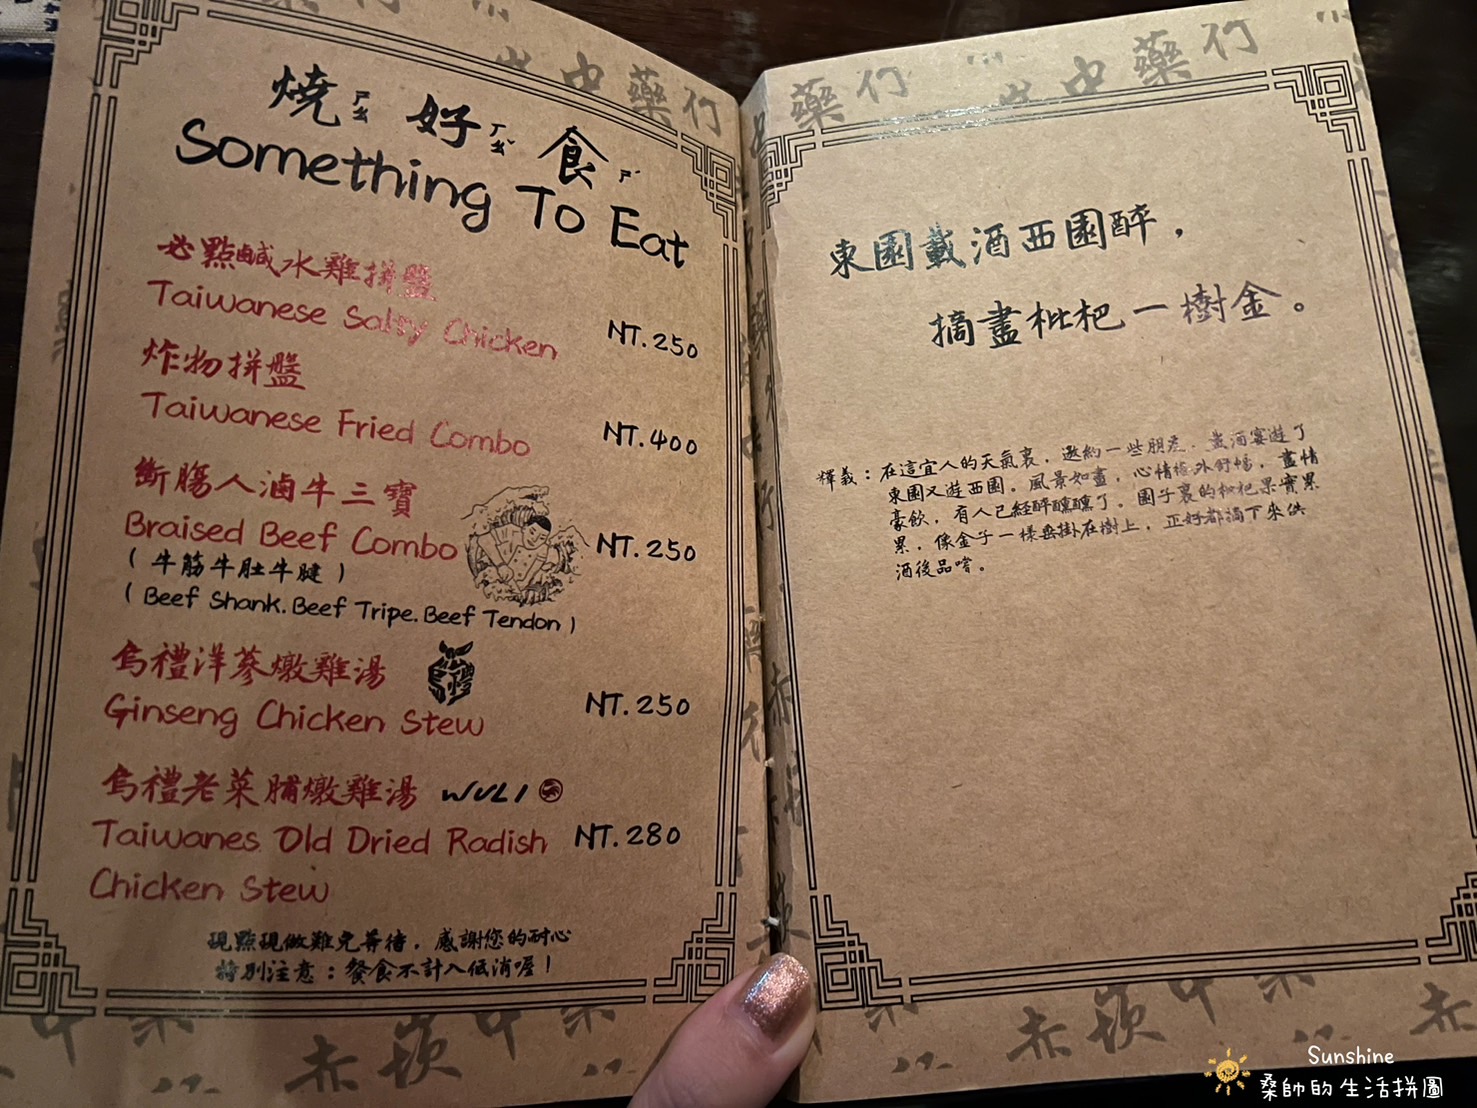 燒ㄏㄠ 好ㄏㄠˇ 食ㄕˊ
Something To Eat
必點鹹水雞拼盤
Taiwanese Salty Chicken NT.250
炸物拼盤
Taiwanese Fried Combo NT.400
斷腸人滷牛三寶
Braised Beef Combo NT.250
(牛筋牛肚牛腱)
(Beef Shank.Beef Tripe.Beef Tendon)
烏禮洋蔘燉雞湯
Ginseng Chicken Stew NT.250
烏禮老菜脯燉雞湯 WULI
Taiwanes Old Dried Radish NT.280
Chicken Stew
現點現做難免等待，感謝您的耐心
特別注意：餐食不計入低消喔！
東園載酒西園醉，
摘盡枇杷一樹金。
釋義：在這宜人的天氣裏，邀約一些朋友，載酒宴遊了
東園又遊西園。風景如畫，心情格外舒暢，盡情
豪飲，有人已經醉醺醺了。園子裏的枇杷果實累
累，像金子一樣垂掛在樹上，正好都摘下來供
酒後品嚐。
中藥行
藥行
中藥行
赤崁中藥
赤崁中藥
赤
Sunshine
桑帥的生活拼圖